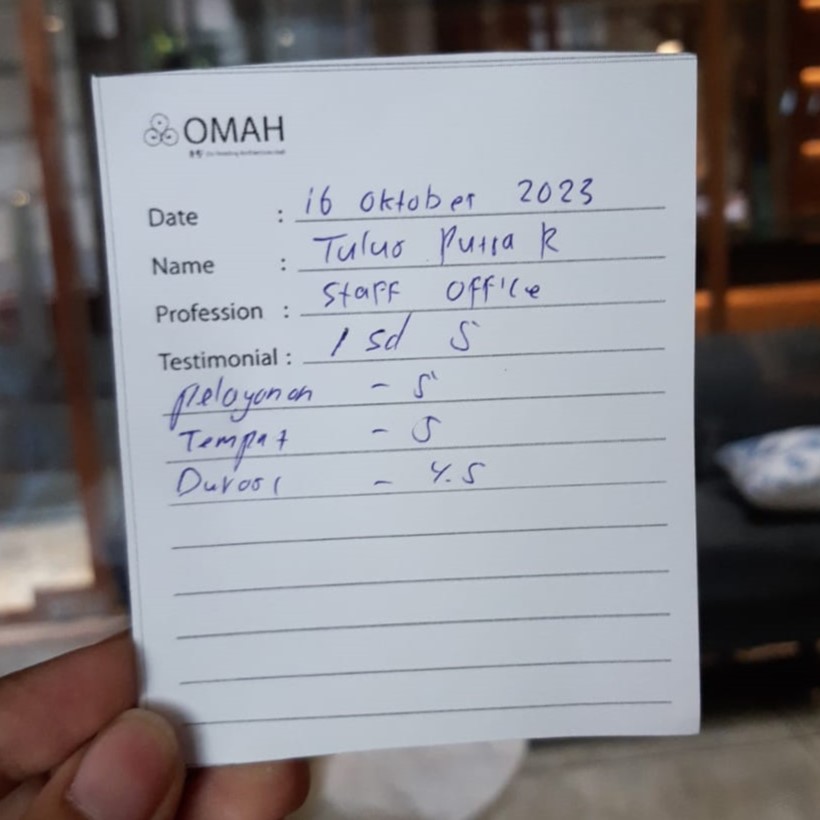 OMAH
Date : 16 Oktober 2023
Name : Tulus Putra R
Profession : Staff Office
Testimonial : 1 sd 5
Pelayanan - 5
Tempat - 5
Durasi - 4.5